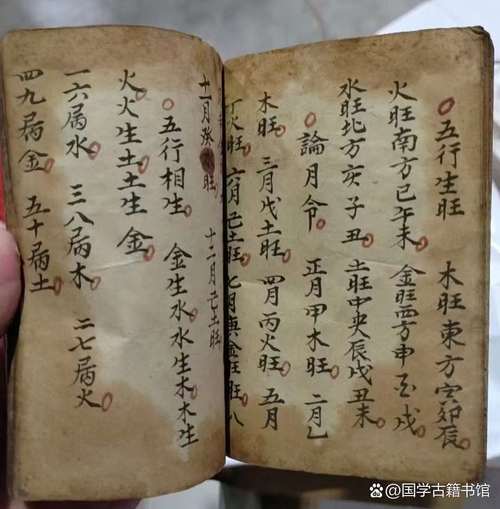 五行生旺 木旺東方寅卯辰
火旺南方巳午未 金旺西方申酉戌
水旺北方亥子丑 土旺中央辰戌丑未
論月令 正月甲木旺 二月乙
木旺 三月戊土旺 四月丙火旺 五月
丁火旺 六月己土旺 七月庚金旺旺八
十一月癸水旺 十二月己土旺
五行相生 金生水水生木木生
火火生土土生金
一六属水 三八属木 二七属火
四九属金 五十属土
国学古籍书馆